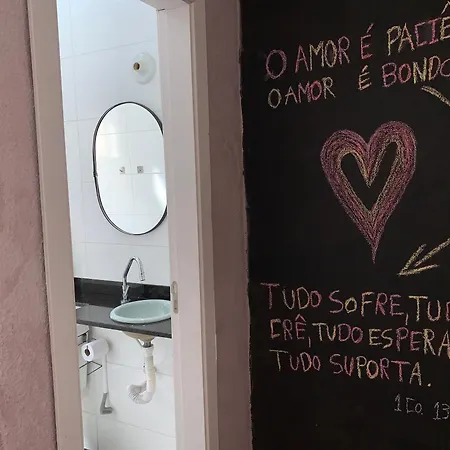 O AMOR É PACIÊ
O AMOR É BONDO
TUDO SOFRE, TUD
CRÊ, TUDO ESPERA
TUDO SUPORTA.
1 CO. 13